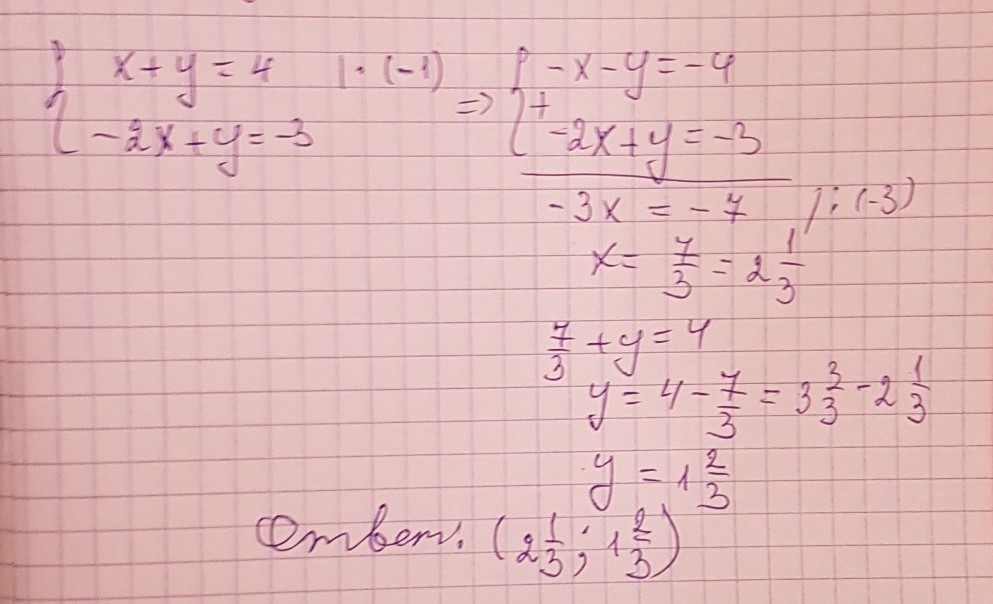 { x + y = 4 | · (-1) => { -x - y = -4
{ -2x + y = -3 + { -2x + y = -3
-3x = -7 | : (-3)
x = 7/3 = 2 1/3
7/3 + y = 4
y = 4 - 7/3 = 3 3/3 - 2 1/3
y = 1 2/3
Ответ. (2 1/3 ; 1 2/3)